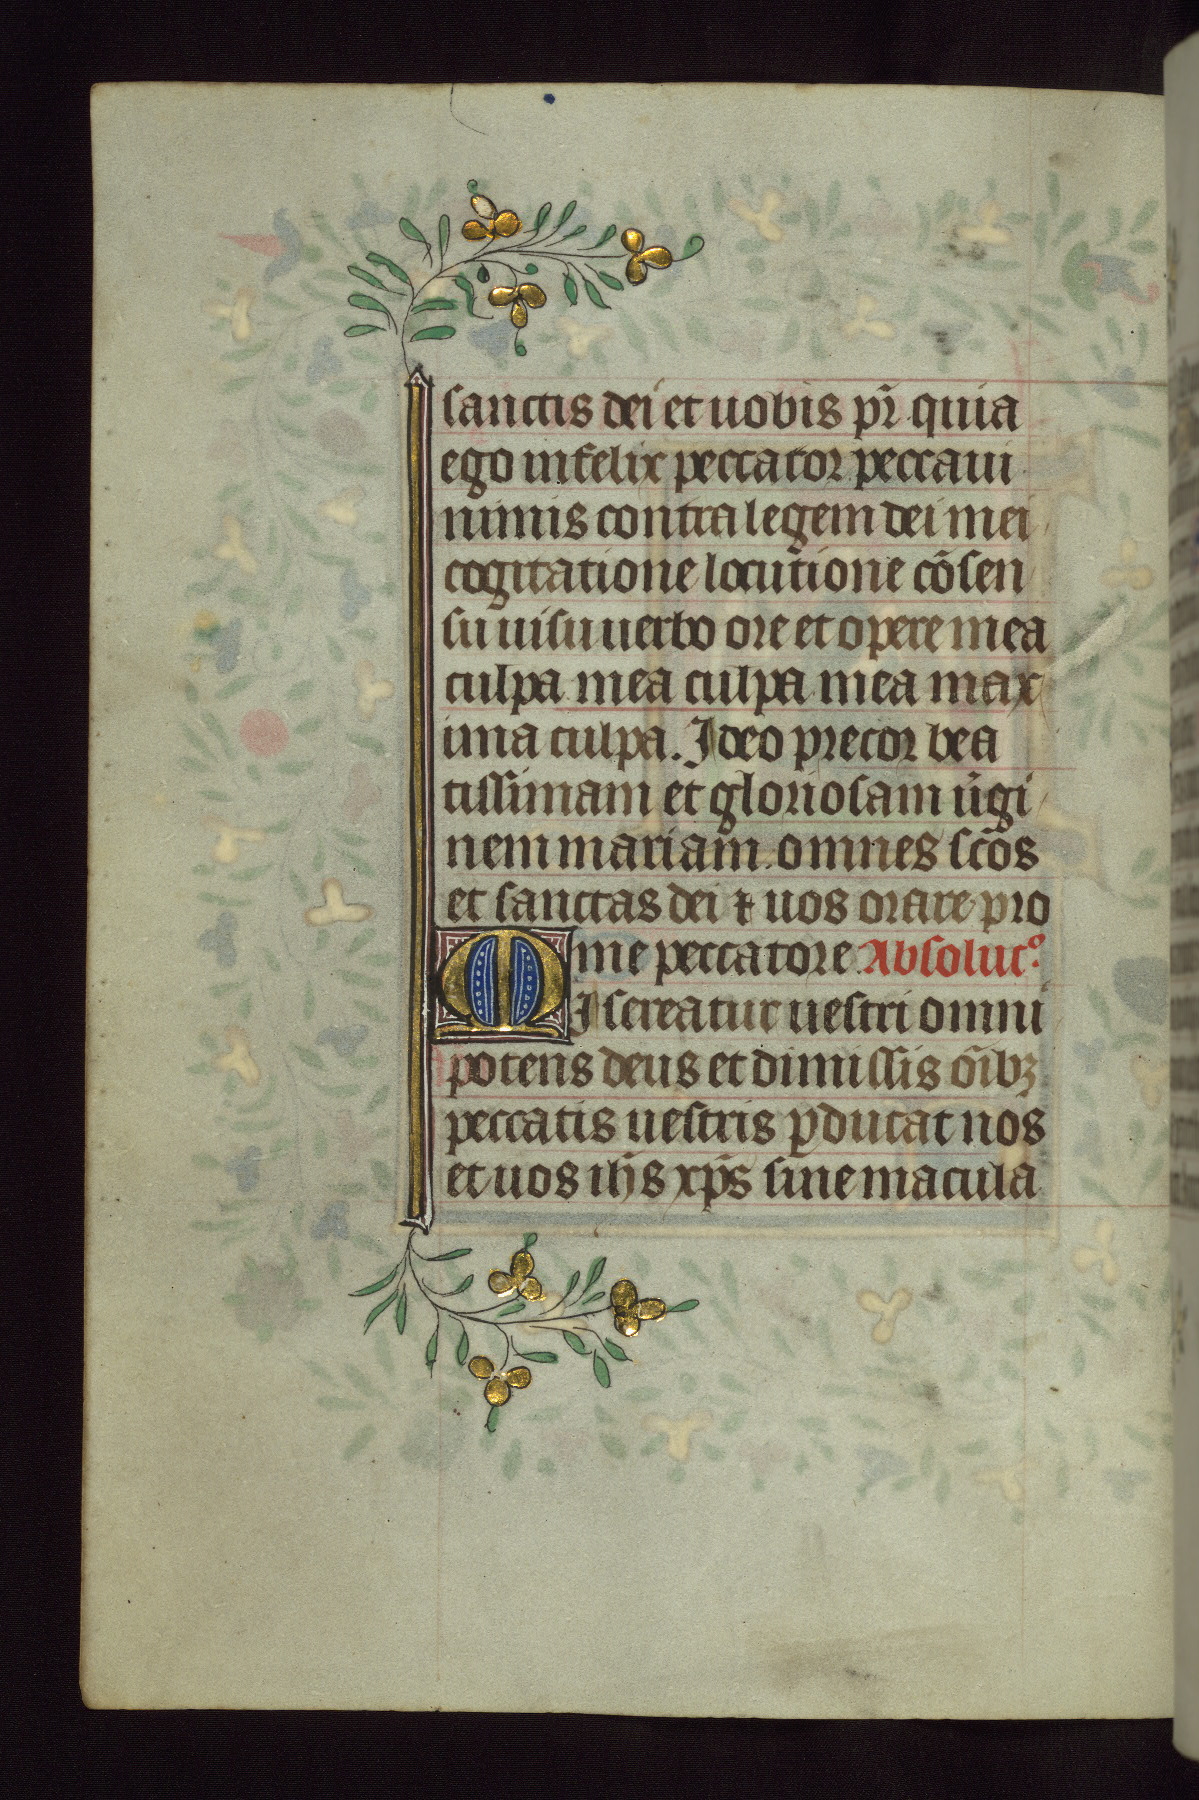 sanctis dei et uobis pr̄ quia
ego infelix peccator peccaui
nimis contra legem dei mei
cogitatione locutione cōsen
su uisu uerbo ore et opere mea
culpa mea culpa mea max
ima culpa. Ideo precor bea
tissimam et gloriosam ūgi
nem mariam omnes sc̄os
et sanctas dei ⁊ uos orare pro
me peccatore Absolucͦ
Misereatur uestri omni
potens deus et dimissis oībꝫ
peccatis uestris ꝑducat nos
et uos ih̄s xp̄s sine macula